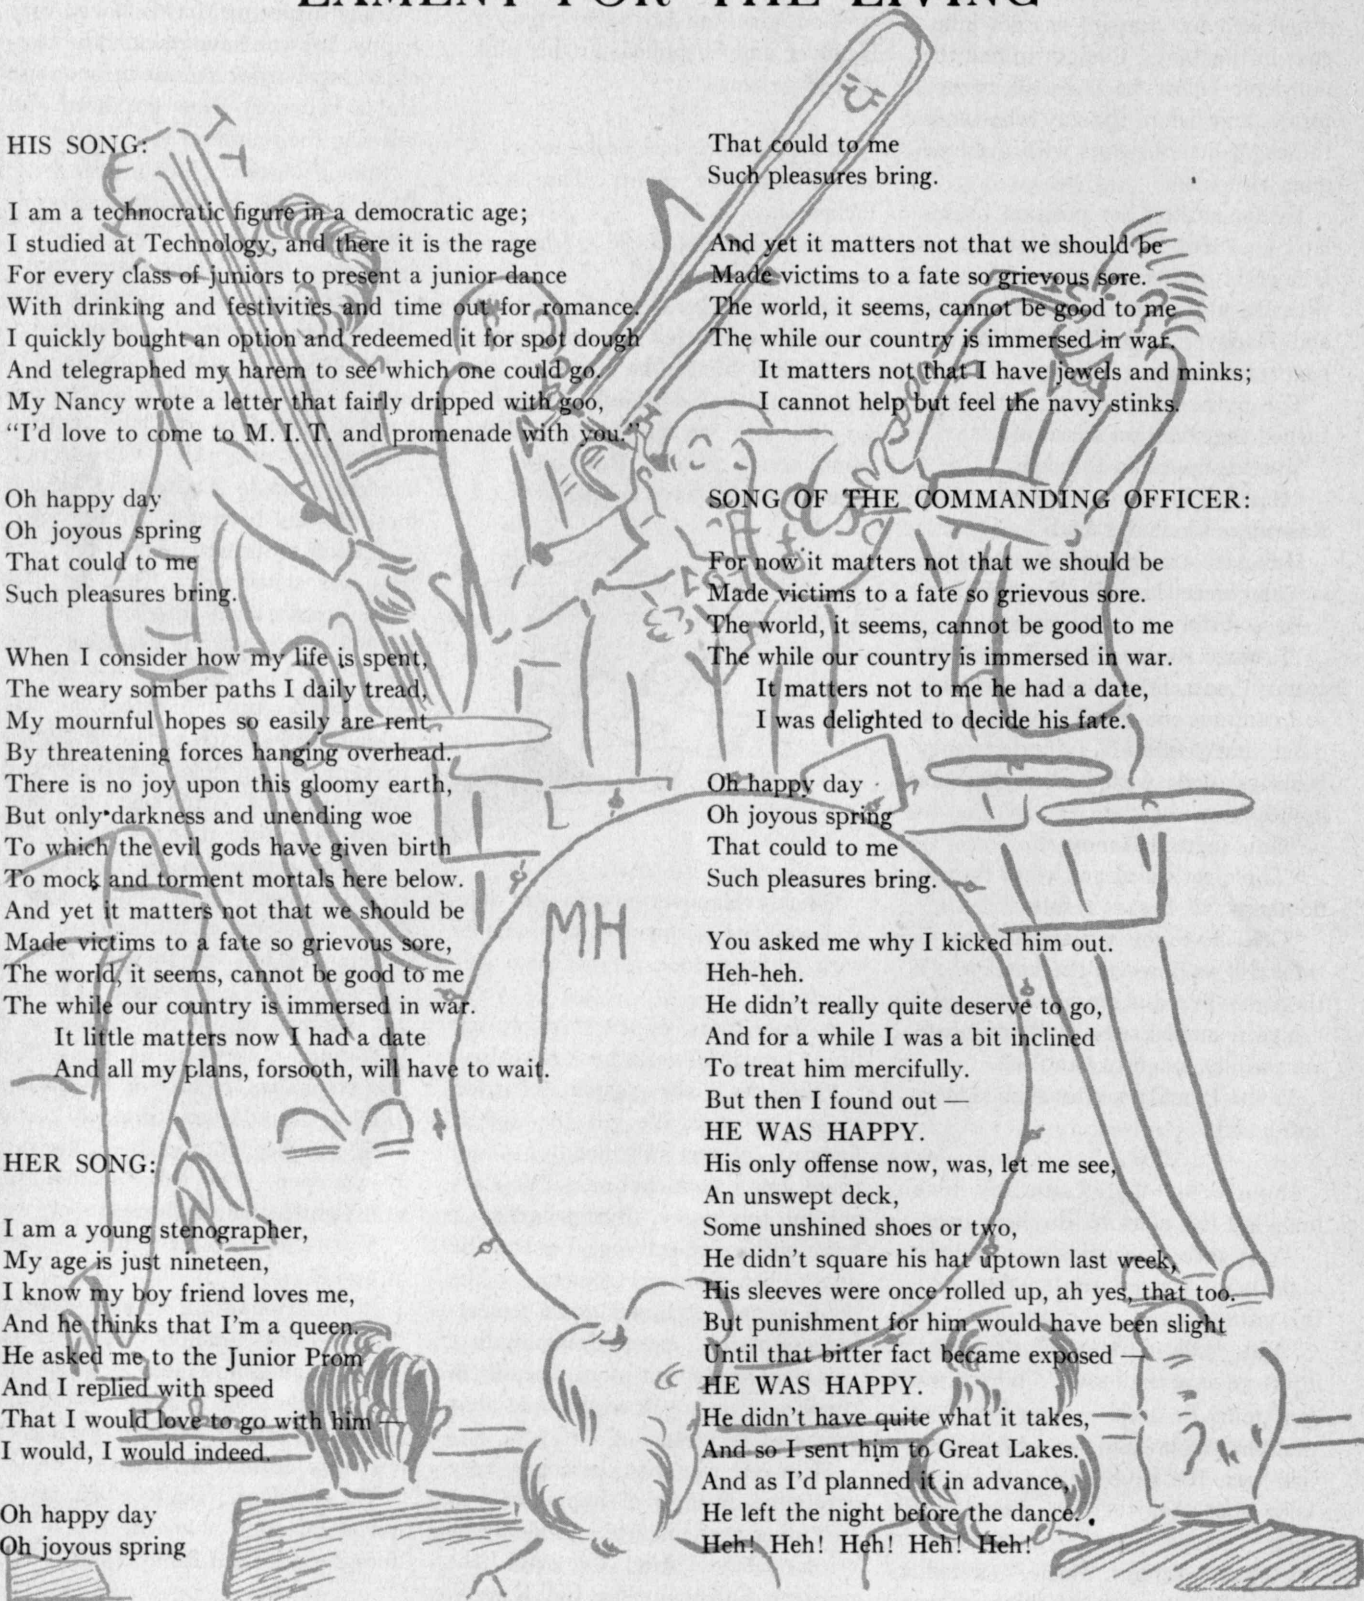 LAMENT FOR THE LIVING
HIS SONG:
I am a technocratic figure in a democratic age;
I studied at Technology, and there it is the rage
For every class of juniors to present a junior dance
With drinking and festivities and time out for romance.
I quickly bought an option and redeemed it for spot dough
And telegraphed my harem to see which one could go.
My Nancy wrote a letter that fairly dripped with goo,
"I'd love to come to M. I. T. and promenade with you."
Oh happy day
Oh joyous spring
That could to me
Such pleasures bring.
When I consider how my life is spent,
The weary somber paths I daily tread,
My mournful hopes so easily are rent
By threatening forces hanging overhead.
There is no joy upon this gloomy earth,
But only darkness and unending woe
To which the evil gods have given birth
To mock and torment mortals here below.
And yet it matters not that we should be
Made victims to a fate so grievous sore,
The world, it seems, cannot be good to me
The while our country is immersed in war.
It little matters now I had a date
And all my plans, forsooth, will have to wait.
HER SONG:
I am a young stenographer,
My age is just nineteen,
I know my boy friend loves me,
And he thinks that I'm a queen.
He asked me to the Junior Prom
And I replied with speed
That I would love to go with him —
I would, I would indeed.
Oh happy day
Oh joyous spring
That could to me
Such pleasures bring.
And yet it matters not that we should be
Made victims to a fate so grievous sore.
The world, it seems, cannot be good to me
The while our country is immersed in war.
It matters not that I have jewels and minks;
I cannot help but feel the navy stinks.
SONG OF THE COMMANDING OFFICER:
For now it matters not that we should be
Made victims to a fate so grievous sore.
The world, it seems, cannot be good to me
The while our country is immersed in war.
It matters not to me he had a date,
I was delighted to decide his fate.
Oh happy day
Oh joyous spring
That could to me
Such pleasures bring.
You asked me why I kicked him out.
Heh-heh.
He didn't really quite deserve to go,
And for a while I was a bit inclined
To treat him mercifully.
But then I found out —
HE WAS HAPPY.
His only offense now, was, let me see,
An unswept deck,
Some unshined shoes or two,
He didn't square his hat uptown last week,
His sleeves were once rolled up, ah yes, that too.
But punishment for him would have been slight
Until that bitter fact became exposed —
HE WAS HAPPY.
He didn't have quite what it takes,
And so I sent him to Great Lakes.
And as I'd planned it in advance,
He left the night before the dance.
Heh! Heh! Heh! Heh! Heh!
MH